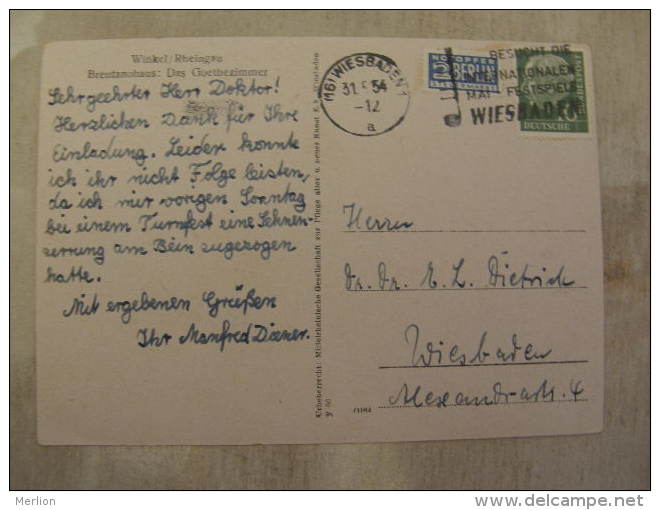 Winkel/Rheingau
Brentanohaus: Das Goethezimmer
Sehrgeehrter Herr Doktor!
Herzlichen Dank für Ihre
Einladung. Leider konnte
ich ihr nicht Folge leisten,
da ich mir vorigen Sonntag
bei einem Turnfest eine Sehnen-
zerrung am Bein zugezogen
hatte.
Mit ergebenen Grüßen
Ihr Manfred
(16) WIESBADEN 1
31. 5. 54
-12
a
NOTOPFER
2 BERLIN
STEUERMARKE
BESUCHT DIE
INTERNATIONALEN
MAI FESTSPIELE
WIESBADEN
DEUTSCHE
10
Herrn
Dr. Dr. E. L. Dietrich
Wiesbaden
Alexandrastr. 4
Urheberrecht: Mittelrheinische Gesellschaft zur Pflege alter u. neuer Kunst E.V. Wiesbaden
Merlion
www.delcampe.net